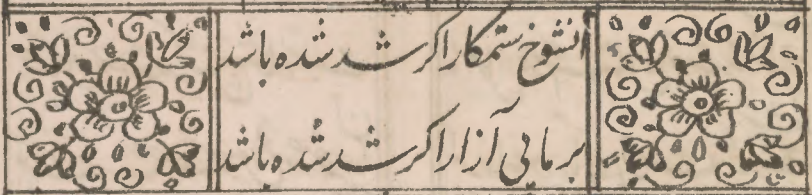 آنشوخ ستمکار اکر شد شده باشد
بر ما پی آزار اکر شد شده باشد